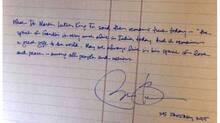 What Dr. Martin Luther King Jr. said then remains true today – "The
spirit of Gandhi is very much alive in India today." And it remains
a great gift to the world. May we always live in his spirit of love
and peace – among all people and nations.
25 January 2015